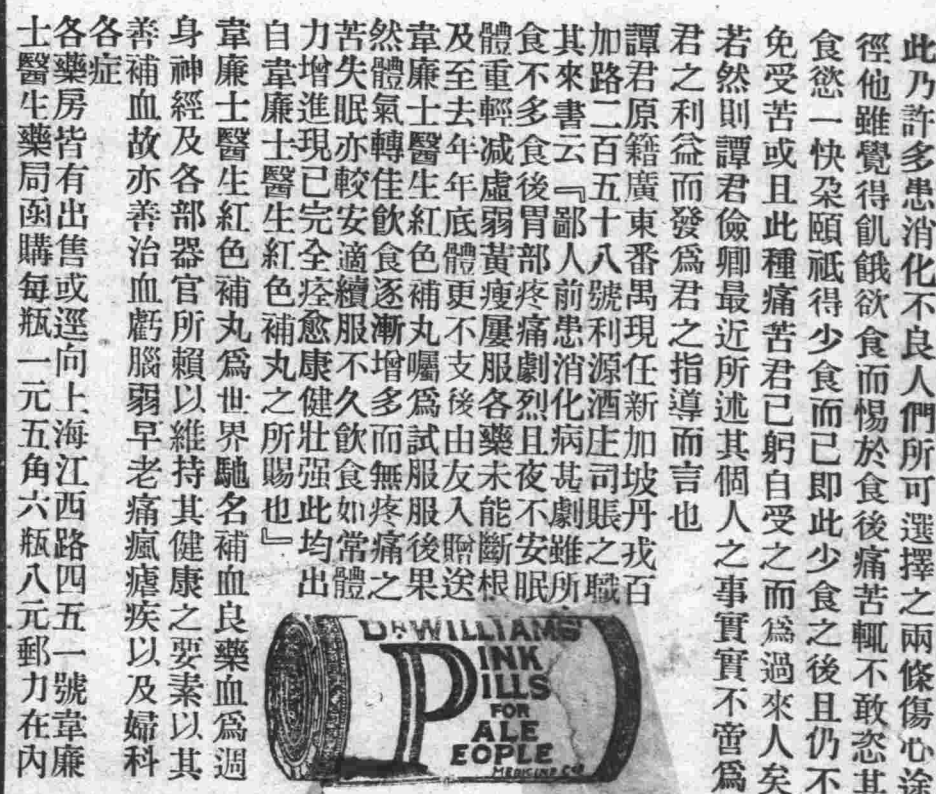 此乃許多患消化不良人們所可選擇之兩條傷心途
徑他雖覺得飢餓欲食而惕於食後痛苦輒不敢恣其
食慾一快朶頤祗得少食而已即此少食之後且仍不
免受苦或且此種痛苦君已躬自受之而爲過來人矣
若然則譚君儉卿最近所述其個人之事實實不啻爲
君之利益而發爲君之指導而言也
譚君原籍廣東番禺現任新加坡丹戎百
加路二百五十八號利源酒庄司賬之職
其來書云『鄙人前患消化病甚劇雖所
食不多食後胃部疼痛劇烈且夜不安眠
體重輕減虛弱黃瘦屢服各藥未能斷根
及至去年年底體更不支後由友入贈送
韋廉士醫生紅色補丸囑爲試服服後果
然體氣轉佳飲食逐漸增多而無疼痛之
苦失眠亦較安適續服不久飲食如常體
力增進現已完全痊愈康健壯强此均出
自韋廉士醫生紅色補丸之所賜也』
韋廉士醫生紅色補丸爲世界馳名補血良藥血爲週
身神經及各部器官所賴以維持其健康之要素以其
善補血故亦善治血虧腦弱早老痛瘋瘧疾以及婦科
各症
各藥房皆有出售或逕向上海江西路四五一號韋廉
士醫生藥局函購每瓶一元五角六瓶八元郵力在內
DR WILLIAMS
PINK
PILLS
FOR
PALE
PEOPLE
MEDICINE Co